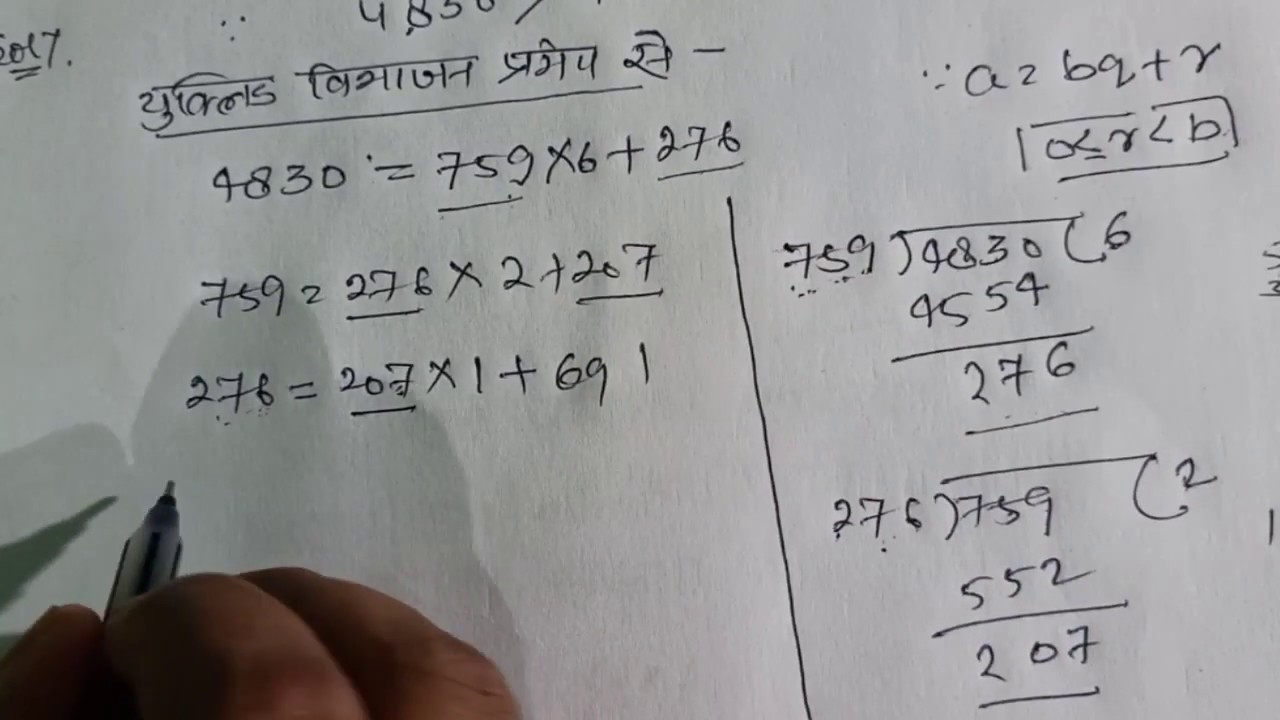 4830
युक्लिड विभाजन प्रमेय से –
4830 = 759 × 6 + 276
759 = 276 × 2 + 207
276 = 207 × 1 + 69 |
∵ a = bq + r
0 ≤ r < b
759 ) 4830 ( 6
4554
276
276 ) 759 ( 2
552
207